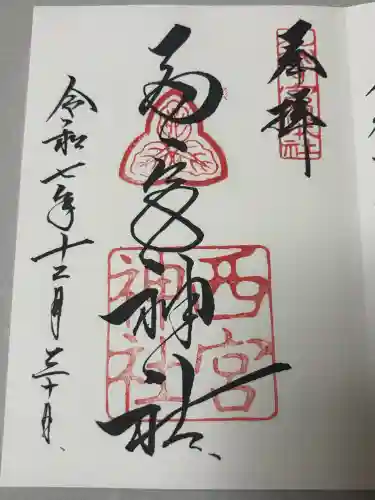 奉拝
西宮神社
西宮
神社
令和七年十二月三十日